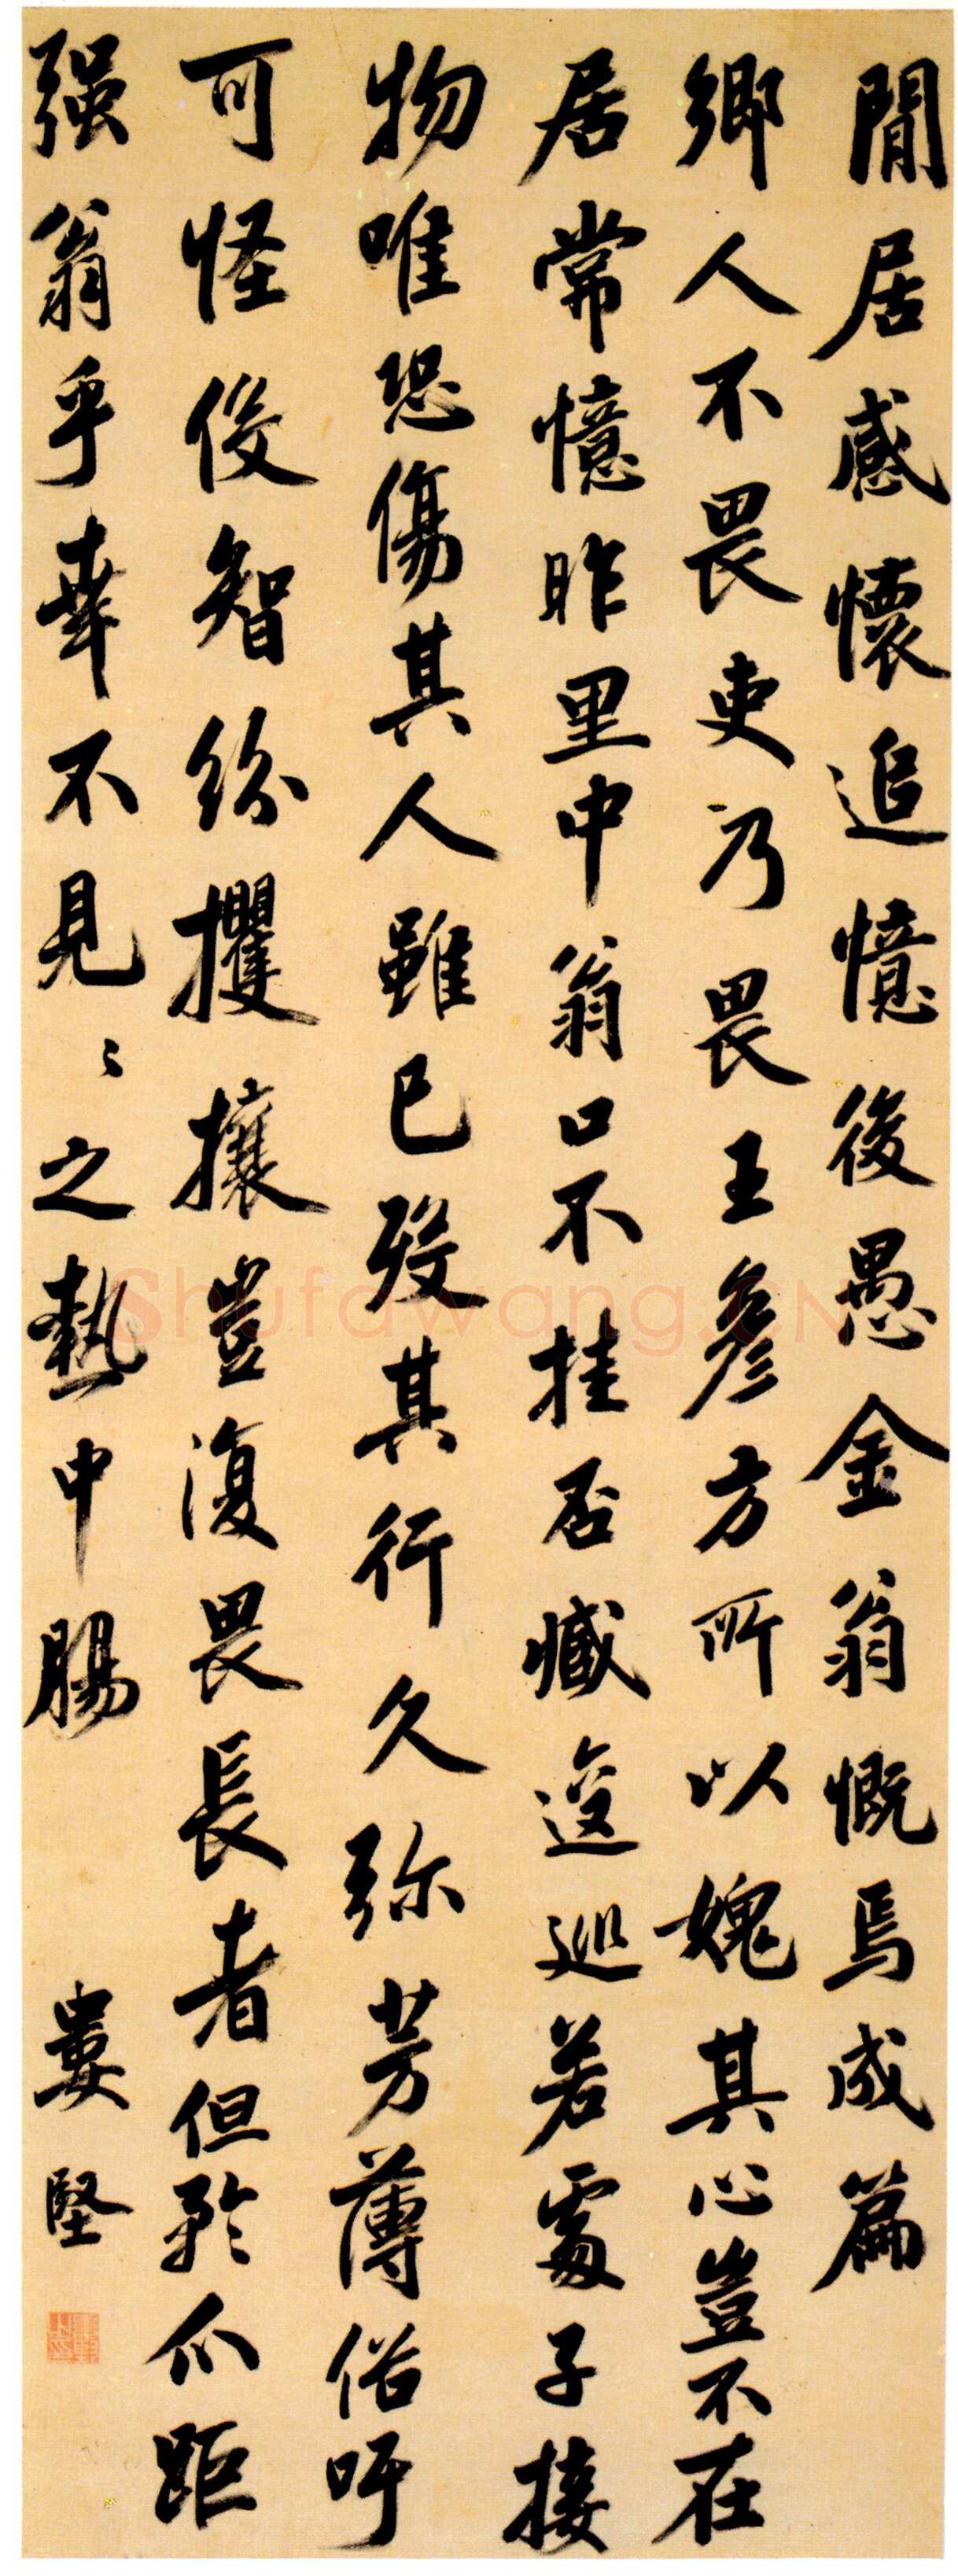 閒居感懷追憶後愚金翁慨焉成篇
鄉人不畏吏乃畏王彥方所以媿其心豈不在
居常憶昨里中翁口不挂否臧逡巡若處子接
物唯恐傷其人雖已歿其行久弥芳薄俗吁
可怪役智紛攫攘豈復畏長者但矜爪距
强翁乎幸不見〻之熱中腸
婁堅
Shufawang.CN